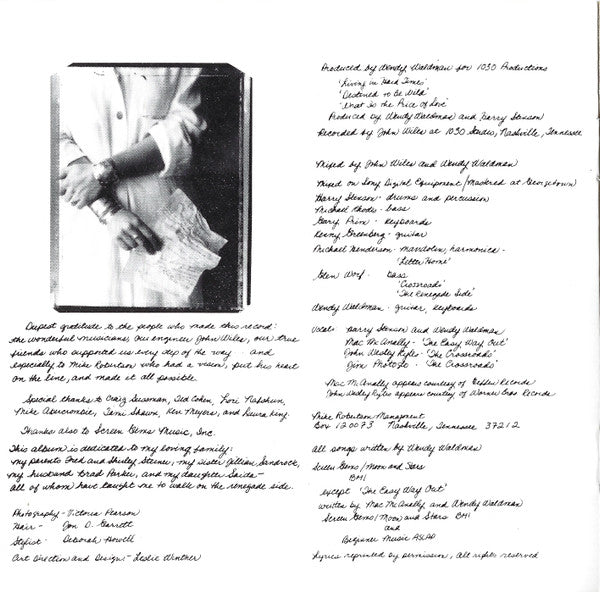 Deepest gratitude to the people who made this record:
the wonderful musicians, our engineer John Wiles, our true
friends who supported us every step of the way - and
especially to Mike Robertson who had a vision, put his heart
on the line, and made it all possible.
Special thanks to Craig Sussman, Ted Cohen, Lori Nafshun,
Mike Abercrombie, Tami Shawn, Ken Meyers, and Laura Ling.
Thanks also to Screen Gems Music, Inc.
This album is dedicated to my loving family:
my parents Fred and Shirley Steiner, my sister Jillian Sandrock,
my husband Brad Parker, and my daughter Saida -
all of whom have taught me to walk on the renegade side.
Photography - Victoria Pearson
Hair - Jon D. Garrett
Stylist - Deborah Howell
Art Direction and Design - Leslie Winther
Produced by Wendy Waldman for 1030 Productions
'Living in Hard Times'
'Destined to Be Wild'
'What Is the Price of Love'
Produced by Wendy Waldman and Harry Stinson
Recorded by John Wiles at 1030 Studio, Nashville, Tennessee
Mixed by John Wiles and Wendy Waldman
Mixed on Sony Digital Equipment / Mastered at Georgetown
Harry Stinson - drums and percussion
Michael Rhodes - bass
Gary Prim - keyboards
Kenny Greenberg - guitar
Michael Henderson - mandolin, harmonica -
'Letter Home'
Glen Worf - bass
'Crossroads'
'The Renegade Side'
Wendy Waldman - guitar, keyboards
Vocals: Harry Stinson and Wendy Waldman
Mac McAnally - 'The Easy Way Out'
John Wesley Ryles - 'The Crossroads'
Jim Photoglo - 'The Crossroads'
Mac McAnally appears courtesy of Geffen Records
John Wesley Ryles appears courtesy of Warner Bros Records
Mike Robertson Management
Box 120073 Nashville, Tennessee 37212
All songs written by Wendy Waldman
Screen Gems / Moon and Stars
BMI
except 'The Easy Way Out'
written by Mac McAnally and Wendy Waldman
Screen Gems / Moon and Stars BMI
and
Beginner Music ASCAP
Lyrics reprinted by permission, All rights reserved